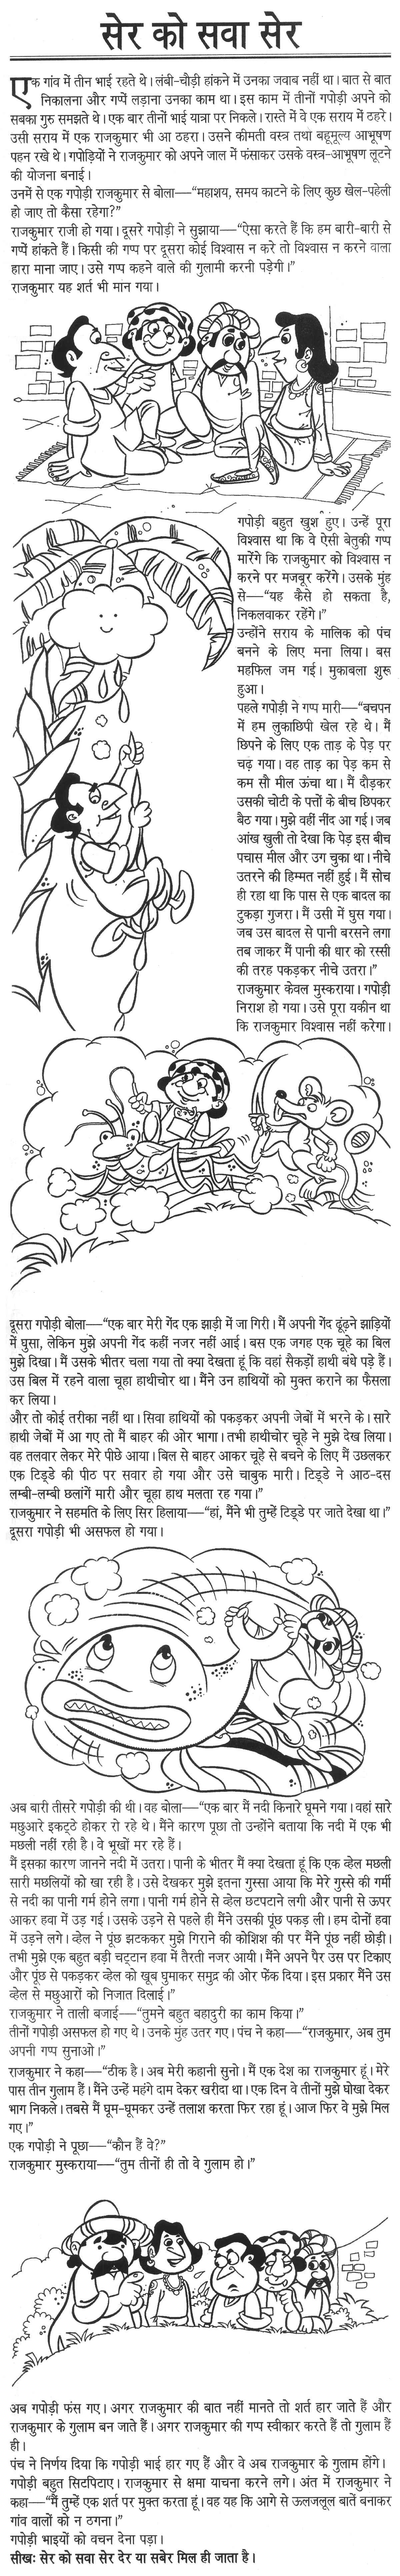 सेर को सवा सेर
एक गांव में तीन भाई रहते थे। लंबी-चौड़ी हांकने में उनका जवाब नहीं था। बात से बात
निकालना और गप्पें लड़ाना उनका काम था। इस काम में तीनों गपोड़ी अपने को
सबका गुरु समझते थे। एक बार तीनों भाई यात्रा पर निकले। रास्ते में वे एक सराय में ठहरे।
उसी सराय में एक राजकुमार भी आ ठहरा। उसने कीमती वस्त्र तथा बहुमूल्य आभूषण
पहन रखे थे। गपोड़ियों ने राजकुमार को अपने जाल में फंसाकर उसके वस्त्र-आभूषण लूटने
की योजना बनाई।
उनमें से एक गपोड़ी राजकुमार से बोला—“महाशय, समय काटने के लिए कुछ खेल-पहेली
हो जाए तो कैसा रहेगा?”
राजकुमार राजी हो गया। दूसरे गपोड़ी ने सुझाया—“ऐसा करते हैं कि हम बारी-बारी से
गप्पें हांकते हैं। किसी की गप्प पर दूसरा कोई विश्वास न करे तो विश्वास न करने वाला
हारा माना जाए। उसे गप्प कहने वाले की गुलामी करनी पड़ेगी।”
राजकुमार यह शर्त भी मान गया।
गपोड़ी बहुत खुश हुए। उन्हें पूरा
विश्वास था कि वे ऐसी बेतुकी गप्प
मारेंगे कि राजकुमार को विश्वास न
करने पर मजबूर करेंगे। उसके मुंह
से—“यह कैसे हो सकता है,
निकलवाकर रहेंगे।”
उन्होंने सराय के मालिक को पंच
बनने के लिए मना लिया। बस
महफिल जम गई। मुकाबला शुरू
हुआ।
पहले गपोड़ी ने गप्प मारी—“बचपन
में हम लुकाछिपी खेल रहे थे। मैं
छिपने के लिए एक ताड़ के पेड़ पर
चढ़ गया। वह ताड़ का पेड़ कम से
कम सौ मील ऊंचा था। मैं दौड़कर
उसकी चोटी के पत्तों के बीच छिपकर
बैठ गया। मुझे वहीं नींद आ गई। जब
आंख खुली तो देखा कि पेड़ इस बीच
पचास मील और उग चुका था। नीचे
उतरने की हिम्मत नहीं हुई। मैं सोच
ही रहा था कि पास से एक बादल का
टुकड़ा गुजरा। मैं उसी में घुस गया।
जब उस बादल से पानी बरसने लगा
तब जाकर मैं पानी की धार को रस्सी
की तरह पकड़कर नीचे उतरा।”
राजकुमार केवल मुस्कराया। गपोड़ी
निराश हो गया। उसे पूरा यकीन था
कि राजकुमार विश्वास नहीं करेगा।
दूसरा गपोड़ी बोला—“एक बार मेरी गेंद एक झाड़ी में जा गिरी। मैं अपनी गेंद ढूंढ़ने झाड़ियों
में घुसा, लेकिन मुझे अपनी गेंद कहीं नजर नहीं आई। बस एक जगह एक चूहे का बिल
मुझे दिखा। मैं उसके भीतर चला गया तो क्या देखता हूं कि वहां सैकड़ों हाथी बंधे पड़े हैं।
उस बिल में रहने वाला चूहा हाथीचोर था। मैंने उन हाथियों को मुक्त कराने का फैसला
कर लिया।
और तो कोई तरीका नहीं था। सिवा हाथियों को पकड़कर अपनी जेबों में भरने के। सारे
हाथी जेबों में आ गए तो मैं बाहर की ओर भागा। तभी हाथीचोर चूहे ने मुझे देख लिया।
वह तलवार लेकर मेरे पीछे आया। बिल से बाहर आकर चूहे से बचने के लिए मैं उछलकर
एक टिड्डे की पीठ पर सवार हो गया और उसे चाबुक मारी। टिड्डे ने आठ-दस
लम्बी-लम्बी छलांगें मारी और चूहा हाथ मलता रह गया।”
राजकुमार ने सहमति के लिए सिर हिलाया—“हां, मैंने भी तुम्हें टिड्डे पर जाते देखा था।”
दूसरा गपोड़ी भी असफल हो गया।
अब बारी तीसरे गपोड़ी की थी। वह बोला—“एक बार मैं नदी किनारे घूमने गया। वहां सारे
मछुआरे इकट्ठे होकर रो रहे थे। मैंने कारण पूछा तो उन्होंने बताया कि नदी में एक भी
मछली नहीं रही है। वे भूखों मर रहे हैं।
मैं इसका कारण जानने नदी में उतरा। पानी के भीतर मैं क्या देखता हूं कि एक व्हेल मछली
सारी मछलियों को खा रही है। उसे देखकर मुझे इतना गुस्सा आया कि मेरे गुस्से की गर्मी
से नदी का पानी गर्म होने लगा। पानी गर्म होने से व्हेल छटपटाने लगी और पानी से ऊपर
आकर हवा में उड़ गई। उसके उड़ने से पहले ही मैंने उसकी पूंछ पकड़ ली। हम दोनों हवा
में उड़ने लगे। व्हेल ने पूंछ झटककर मुझे गिराने की कोशिश की पर मैंने पूंछ नहीं छोड़ी।
तभी मुझे एक बहुत बड़ी चट्टान हवा में तैरती नजर आयी। मैंने अपने पैर उस पर टिकाए
और पूंछ से पकड़कर व्हेल को खूब घुमाकर समुद्र की ओर फेंक दिया। इस प्रकार मैंने उस
व्हेल से मछुआरों को निजात दिलाई।”
राजकुमार ने ताली बजाई—“तुमने बहुत बहादुरी का काम किया।”
तीनों गपोड़ी असफल हो गए थे। उनके मुंह उतर गए। पंच ने कहा—“राजकुमार, अब तुम
अपनी गप्प सुनाओ।”
राजकुमार ने कहा—“ठीक है। अब मेरी कहानी सुनो। मैं एक देश का राजकुमार हूं। मेरे
पास तीन गुलाम हैं। मैंने उन्हें महंगे दाम देकर खरीदा था। एक दिन वे तीनों मुझे धोखा देकर
भाग निकले। तबसे मैं घूम-घूमकर उन्हें तलाश करता फिर रहा हूं। आज फिर वे मुझे मिल
गए।”
एक गपोड़ी ने पूछा—“कौन हैं वे?”
राजकुमार मुस्कराया—“तुम तीनों ही तो वे गुलाम हो।”
अब गपोड़ी फंस गए। अगर राजकुमार की बात नहीं मानते तो शर्त हार जाते हैं और
राजकुमार के गुलाम बन जाते हैं। अगर राजकुमार की गप्प स्वीकार करते हैं तो गुलाम हैं
ही।
पंच ने निर्णय दिया कि गपोड़ी भाई हार गए हैं और वे अब राजकुमार के गुलाम होंगे।
गपोड़ी बहुत सिटपिटाए। राजकुमार से क्षमा याचना करने लगे। अंत में राजकुमार ने
कहा—“मैं तुम्हें एक शर्त पर मुक्त करता हूं। वह यह कि आगे से ऊलजलूल बातें बनाकर
गांव वालों को न ठगना।”
गपोड़ी भाइयों को वचन देना पड़ा।
सीखः सेर को सवा सेर देर या सबेर मिल ही जाता है।